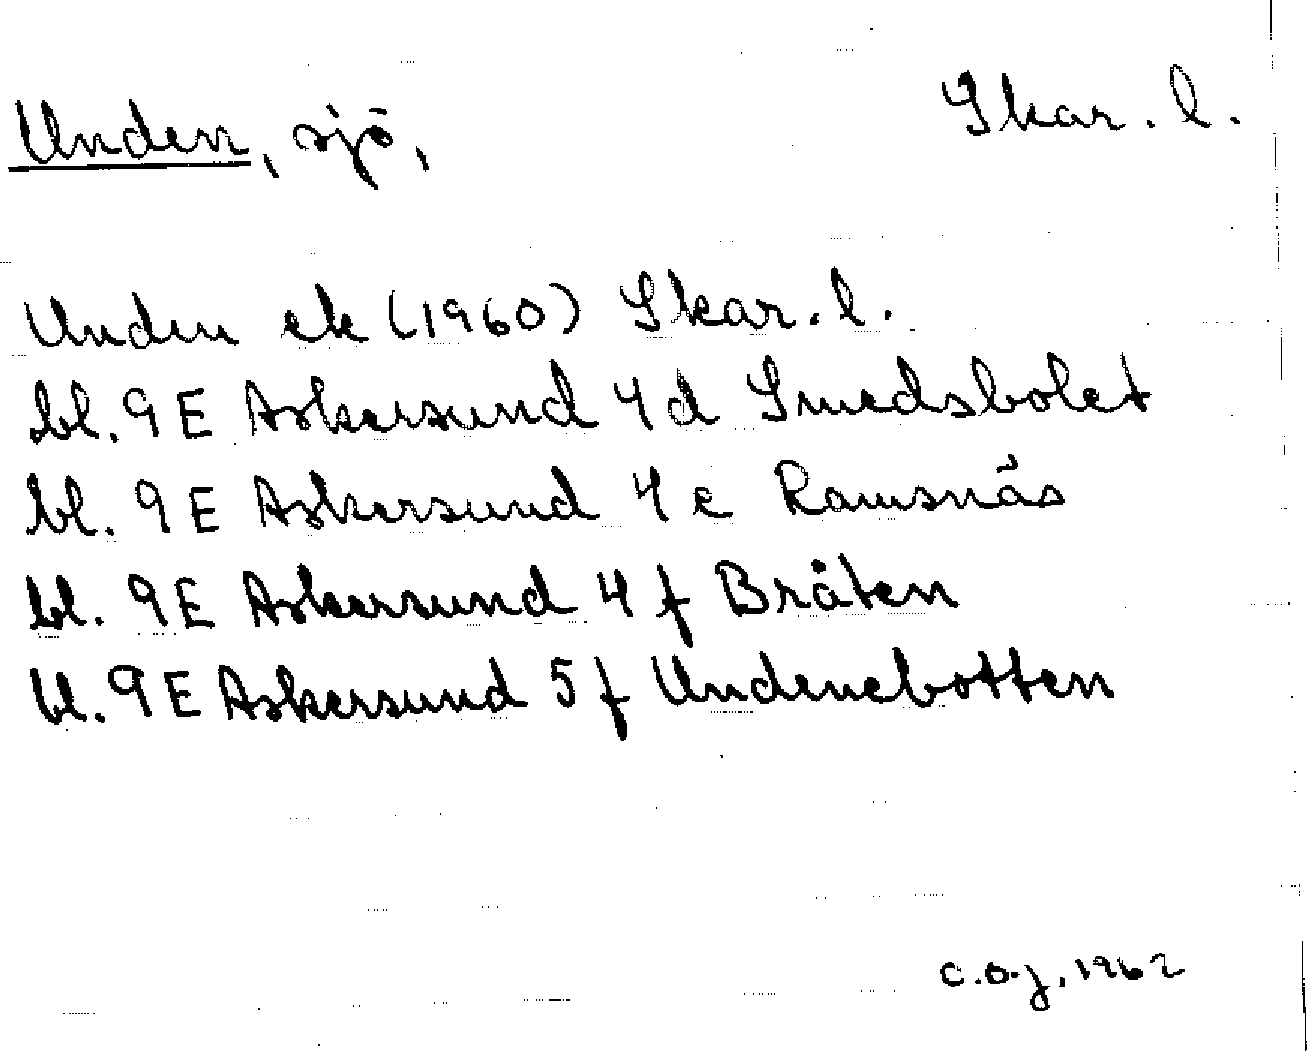 Unden, sjö,
Skar. l.
Unden ek (1960) Skar. l.
bl. 9E Askersund 4d Smedsbolet
bl. 9E Askersund 4e Ramsnäs
bl. 9E Askersund 4f Bråten
bl. 9E Askersund 5f Undenebotten
C.O.J. 1962